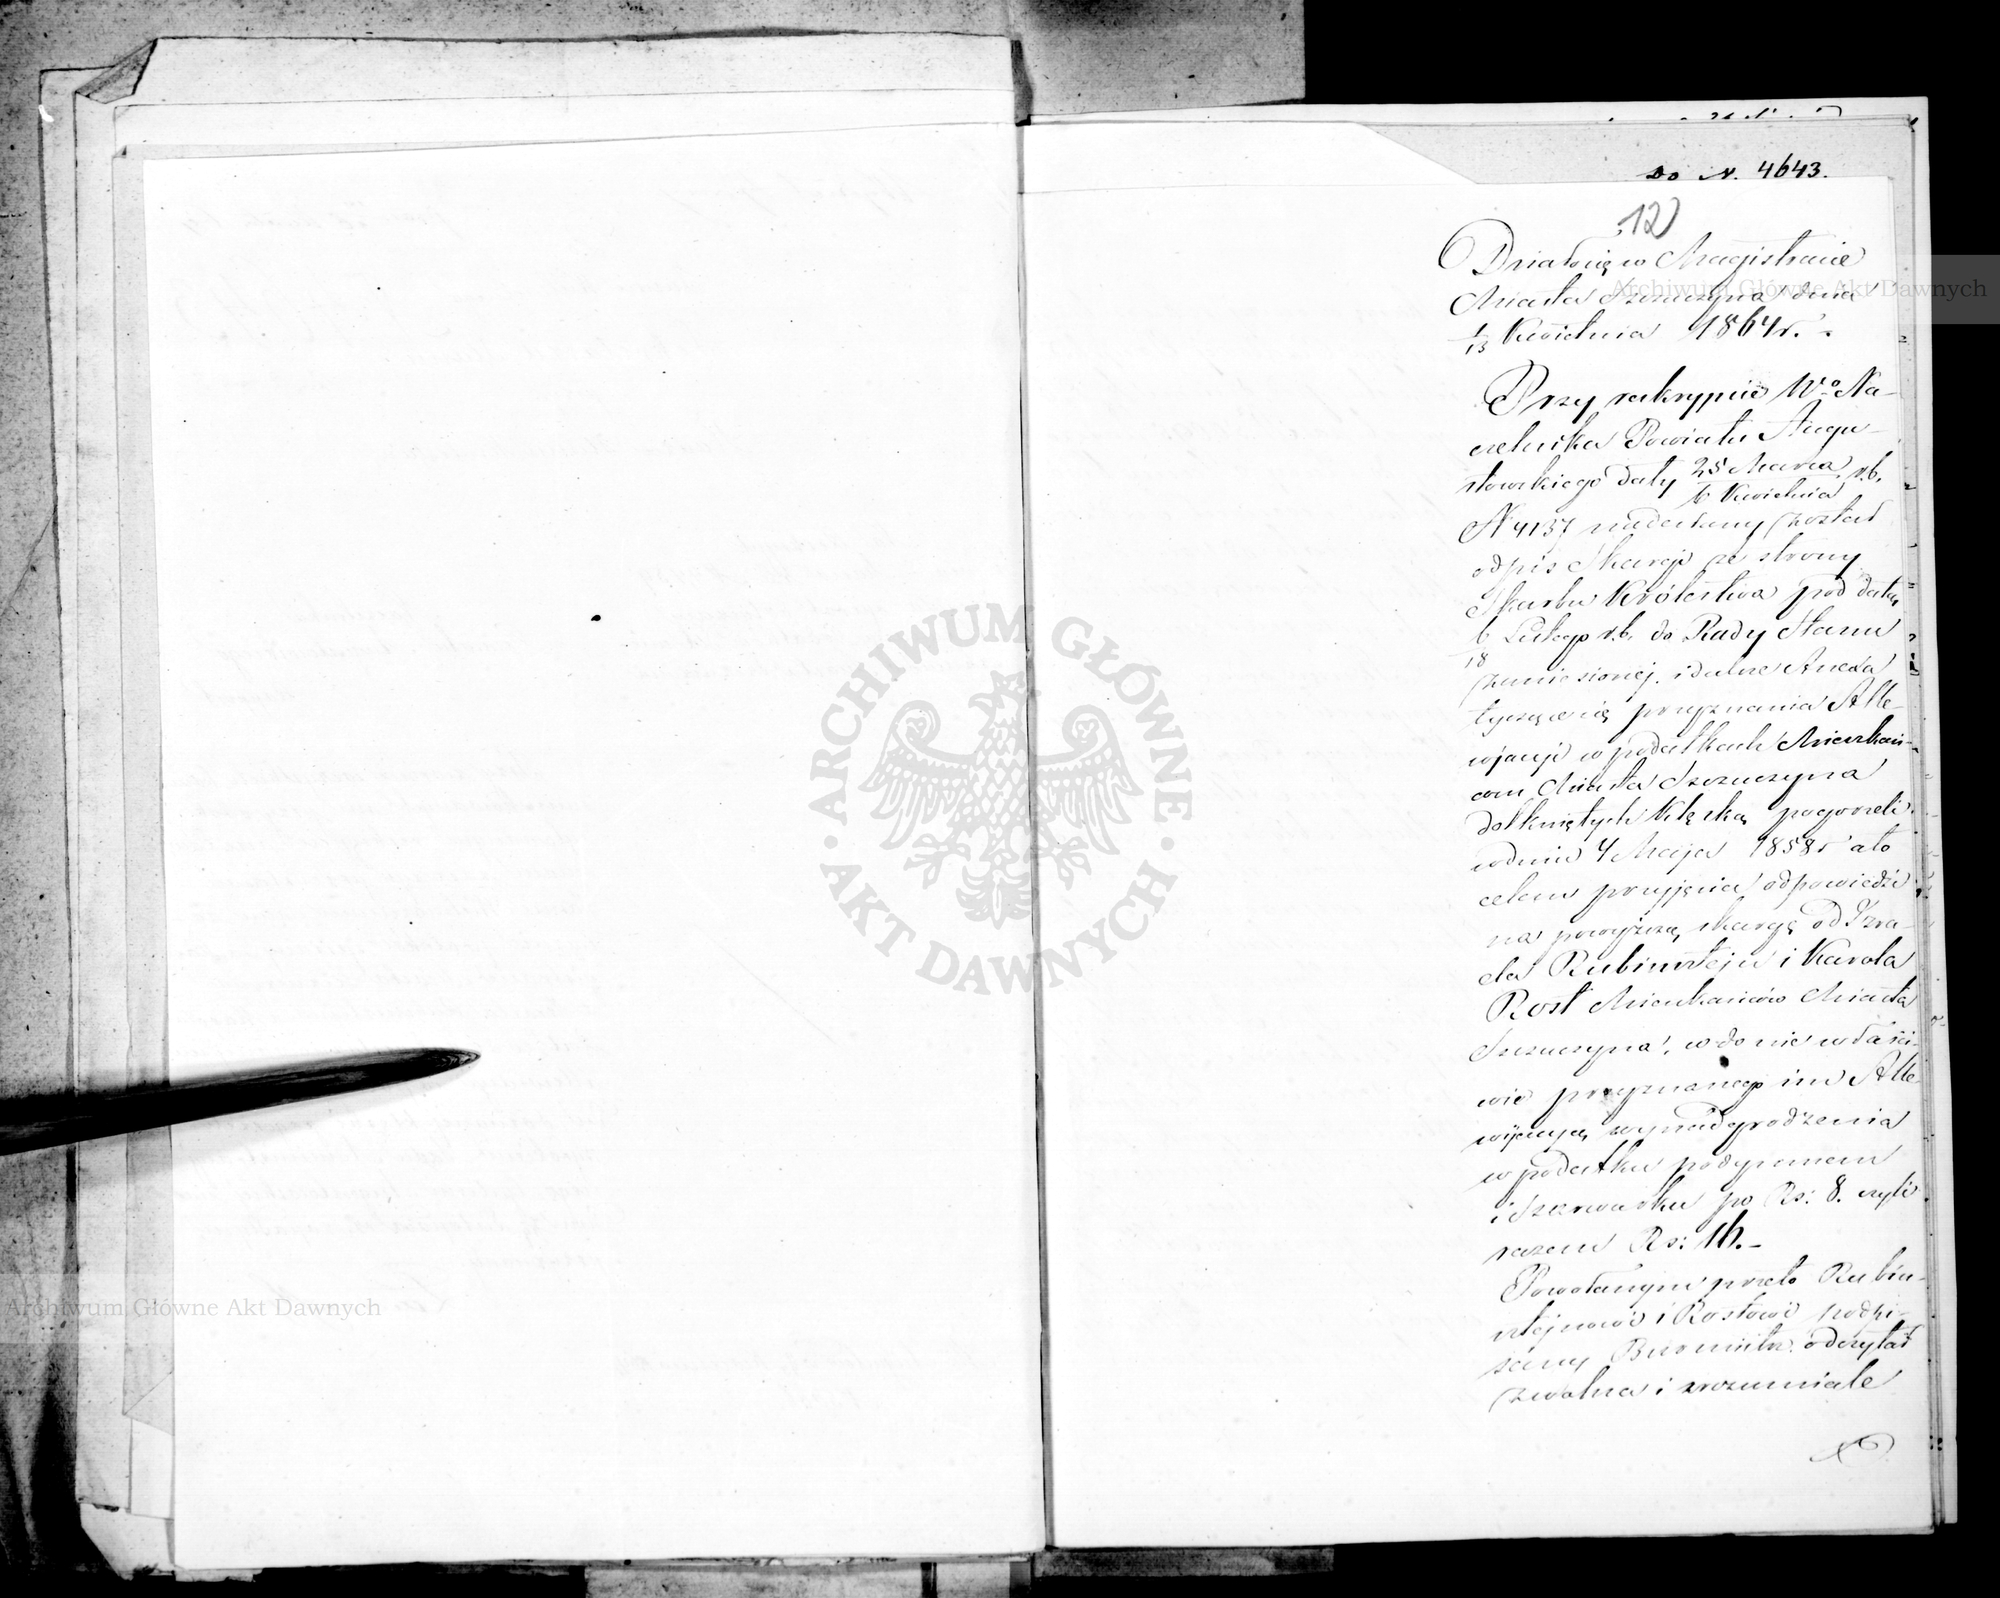 Do N. 4643.
12
Działo się w Magistracie
Miasta Szczuczyna dnia
1/13 Kwietnia 1864 r. -
Przy reskrypcie Wo Na-
czelnika Powiatu Augu-
stowskiego daty 25 Marca/6 Kwietnia r.b.
N 4137 nadesłany został
odpis Skargi ze strony
Skarbu Królestwa pod datą
6/18 Lutego r.b. do Rady Stanu
zaniesionej, i dalsze Anexa
tyczące się przyznania Alle-
wjacji w podatkach Mieszkań-
com Miasta Szczuczyna
dotkniętych klęską pogorzeli
w dniu 4 Maja 1858 r a to
celem przyjęcia odpowiedzi
na powyższą skargę od Izra-
ela Rubinsztejn i Karola
Rost Mieszkańców Miasta
Szczuczyna, w do niewłaści-
wie przyznanego im Alle-
wijacyą wynadgrodzenia
w podatku podymnem
i Szarwarku po Rs: 8. czyli
razem Rs: 16. -
Powołanym przeto Rubin-
sztejnowi i Rostowi podpi-
sany Burmistrz odczytał
zwolna i zrozumiale
Archiwum Główne Akt Dawnych
ARCHIWUM GŁÓWNE
AKT DAWNYCH
Archiwum Główne Akt Dawnych